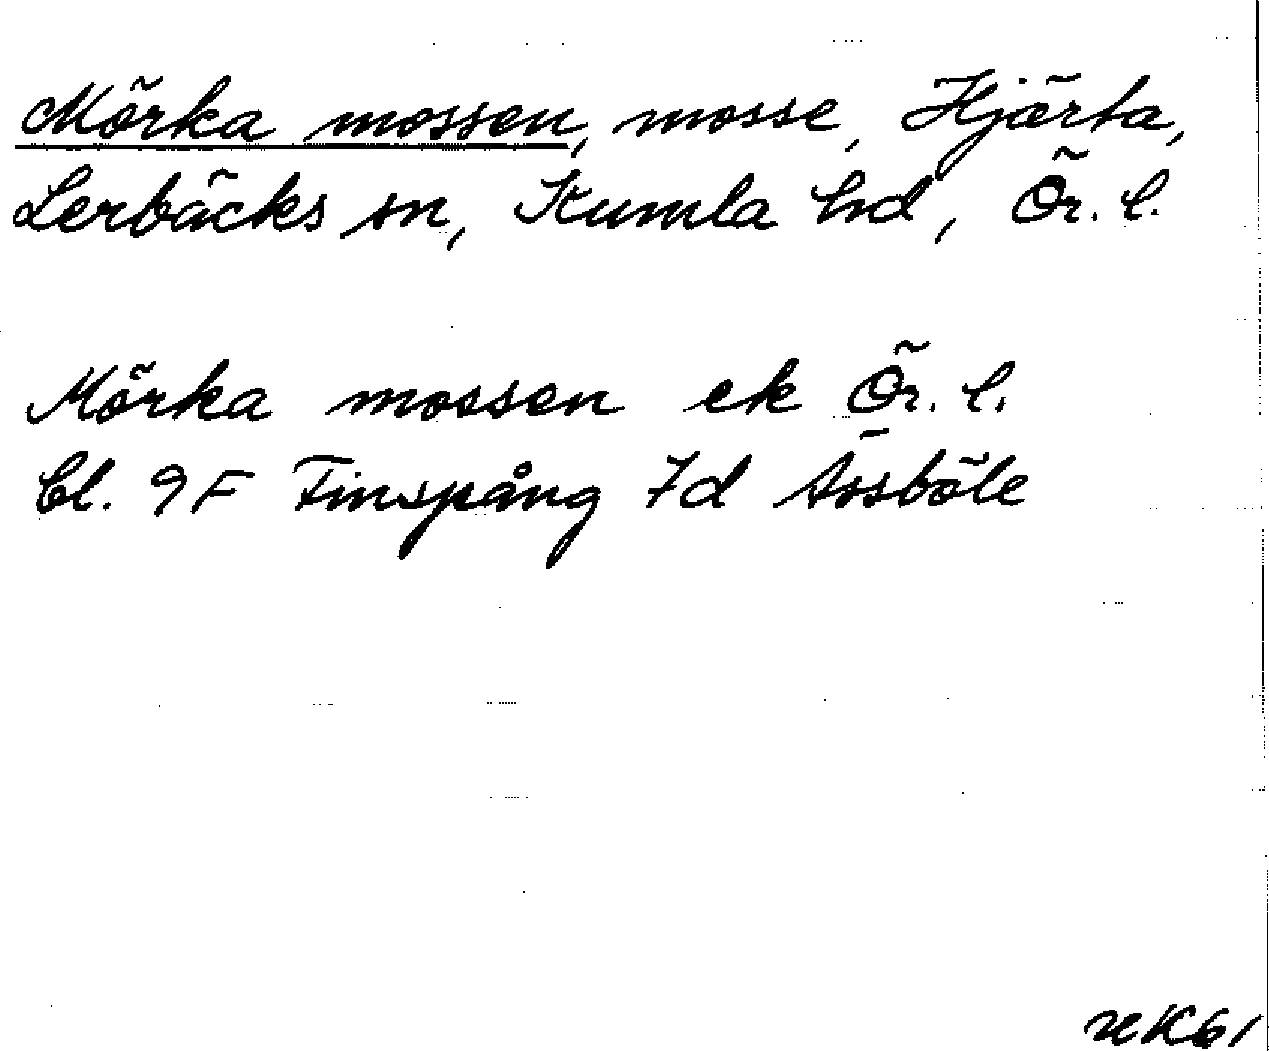 Mörka mossen, mosse, Hjärta,
Lerbäcks sn, Kumla hd, Ör. l.
Mörka mossen ek Ör. l.
bl. 9F Finspång 7d Åsböle